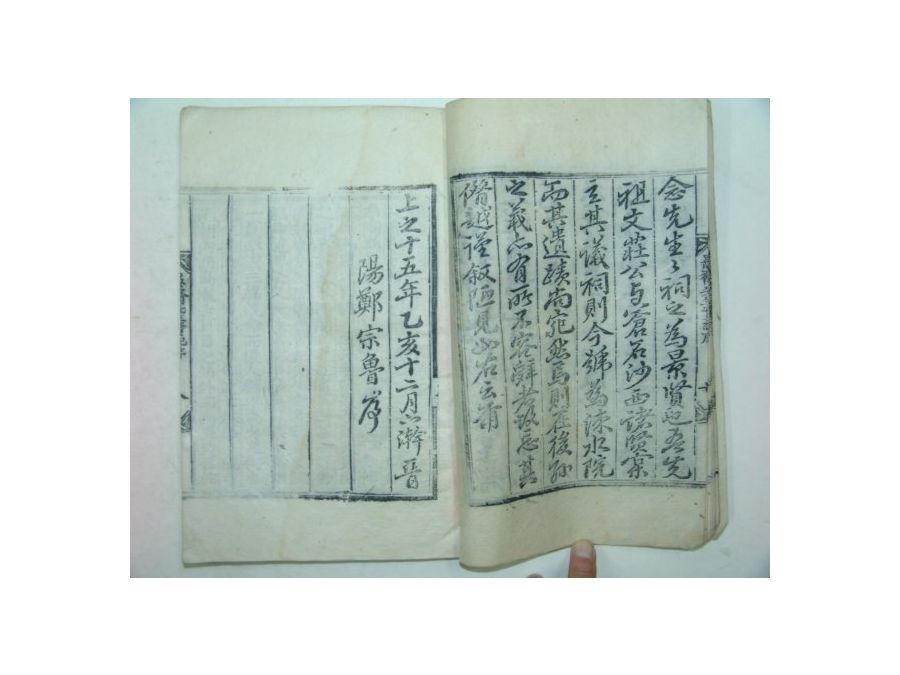 念先生之祠之為景賢也吾先
祖文莊公与蒼石沙西諸賢實
主其議祠則今號為涑水院
而其遺蹟尚宛然焉則在後孫
之義亦有所不容辭者故忘其
僭越謹叙陋見如右云爾
上之十五年乙亥十二月 澣晉
陽鄭宗魯序